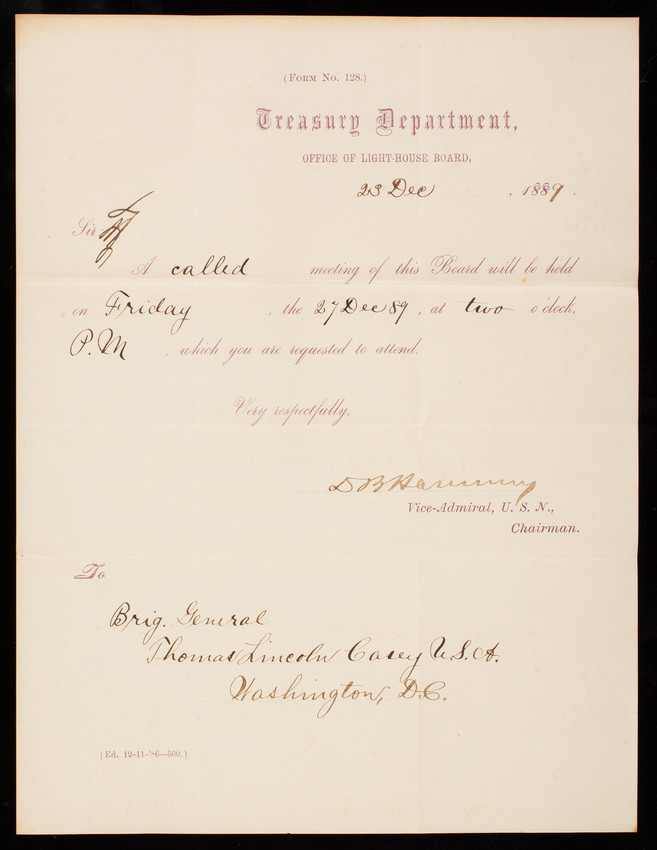 (FORM NO. 128.)
Treasury Department,
OFFICE OF LIGHT-HOUSE BOARD,
23 Dec, 1889.
Sir:
A called meeting of this Board will be held
on Friday, the 27 Dec 89, at two o'clock,
P.M, which you are requested to attend.
Very respectfully,
Vice-Admiral, U. S. N.,
Chairman.
To
Brig. General
Thomas Lincoln Casey U.S.A.
Washington, D.C.
(Ed. 12-11-'86—500.)